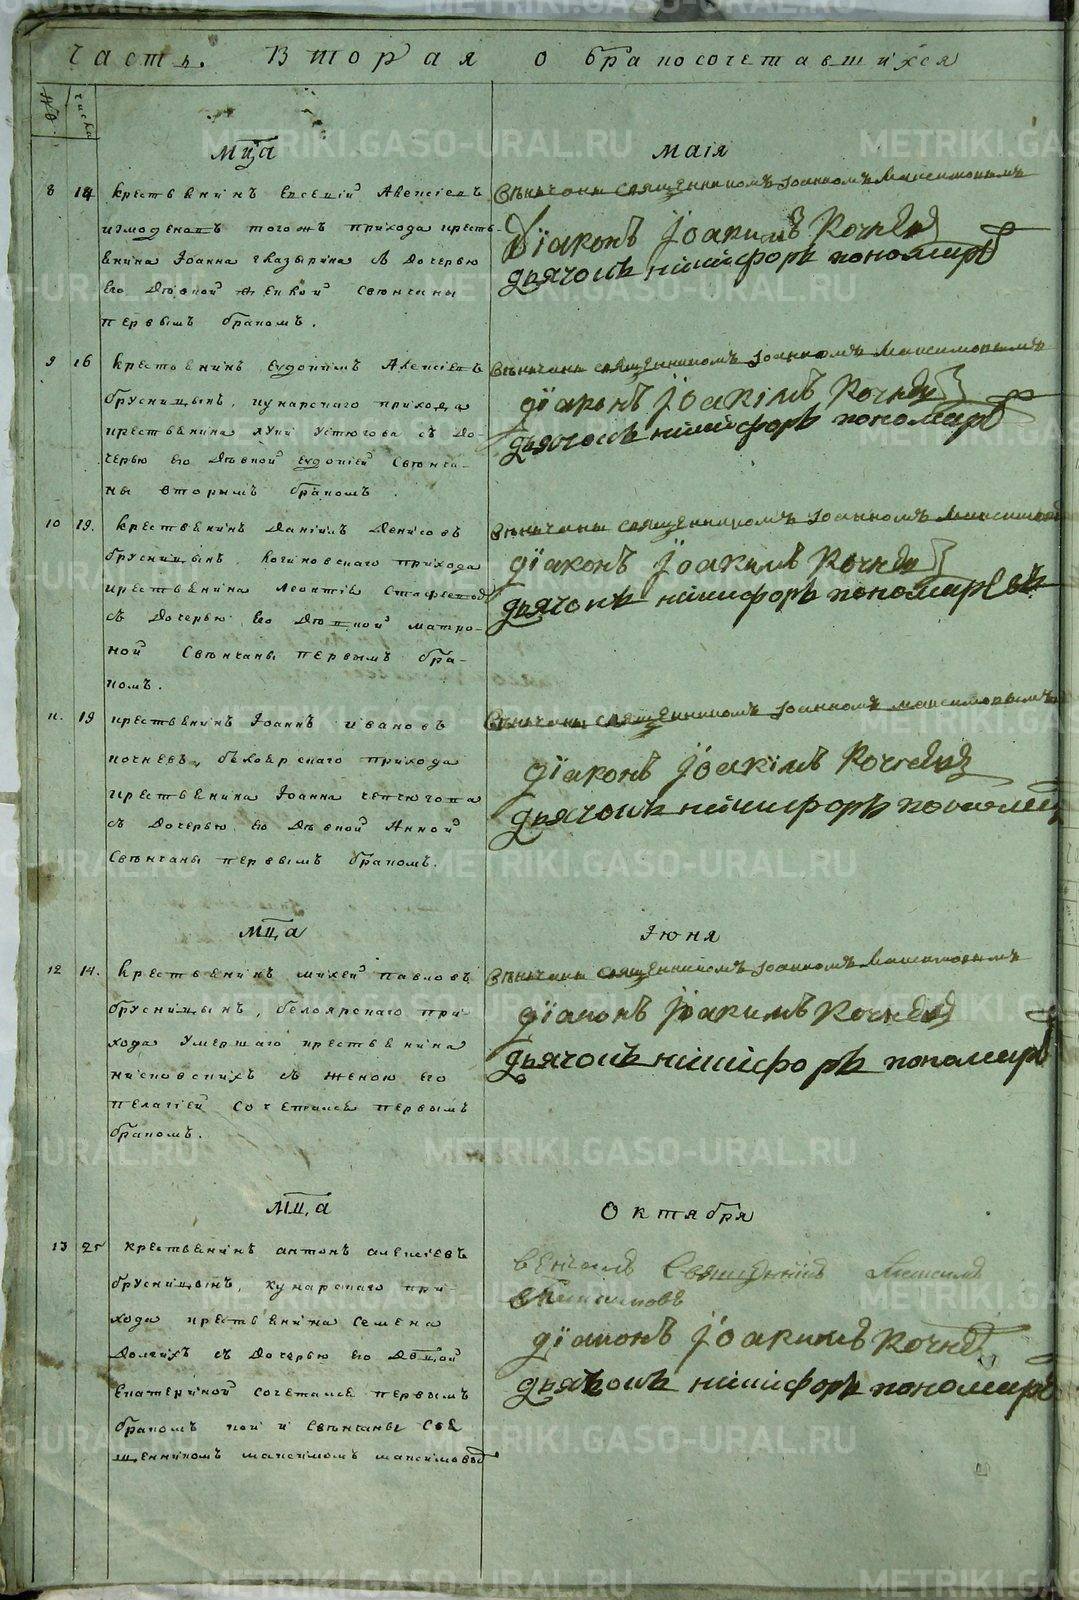 Часть. Вторая о бракосочетавшихся
№ числа
Мца Маія
8 14 крестьвянинъ Евсевій Алексіевъ
измоденовъ тогожъ прихода кресть-
янина Іоанна съ дочерью
его дѣвкой свѣнчаны
первымъ бракомъ.
Вѣнчаны священникомъ Іоанномъ Максимовымъ
Діаконъ Іоакимъ Кочневъ
дьячокъ никифоръ пономаревъ
9 16 крестьвянинъ Евдокимъ Алексіевъ
брусницынъ, кунарскаго прихода
крестьвянина луки Устюгова съ до-
черью его дѣвкой Евдокіей свѣнча-
ны вторымъ бракомъ.
Вѣнчаны священникомъ Іоанномъ Максимовымъ
діаконъ Іоакімъ Кочневъ
дьячокъ никифоръ пономаревъ
10 19. крествянинъ даніилъ денисовъ
брусницынъ, прихода
крествянина леонтія
съ дочерью его дѣвкой матро-
ной свѣнчаны первымъ бра-
комъ.
Вѣнчаны священникомъ Іоанномъ Максимовымъ
діаконъ Іоакимъ Кочневъ
дьячокъ никифоръ пономаревъ
11. 19 крествянинъ Іоаннъ ивановъ
кочневъ, бѣлоярскаго прихода
крествянина Іоанна
съ дочерью его дѣвкой Анной
свѣнчаны первымъ бракомъ.
Вѣнчаны священникомъ Іоанномъ максимовымъ
діаконъ Іоакімъ Кочневъ
дьячокъ никифоръ пономар
Мца Іюня
12 14. крествянинъ михей павловъ
брусницынъ, белоярскаго при
хода умершаго крествянина
съ женою его
пелагіей сочетался первымъ
бракомъ.
Вѣнчаны священникомъ Іоанномъ Максимовымъ
діаконъ Іоакимъ Кочневъ
дьячокъ никифоръ пономаревъ
Мца Октября
13 25 крествянинъ антонъ алексіевъ
брусницынъ, кунарскаго при-
хода крествянина семена
долгихъ съ дочерью его дѣвкой
Екатериной сочетался первымъ
бракомъ кои и свѣнчаны свя
щенникомъ максимомъ максимовымъ
венчалъ священникъ Максимъ
Максимовъ
діаконъ Іоакимъ Кочневъ
дьячокъ никифоръ пономаревъ
METRIKI.GASO-URAL.RU